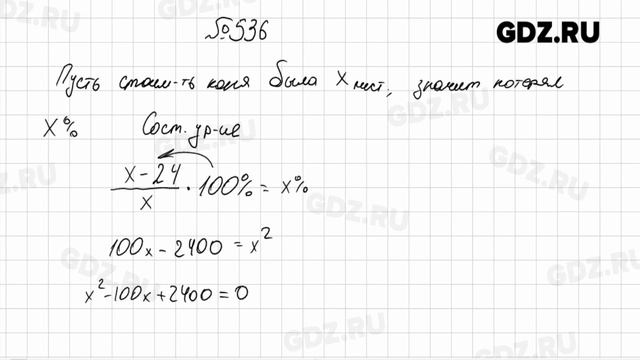 №536
GDZ.RU
Пусть стоим-ть коня была x пист, значит потерял
x%
Сост. ур-ие
x-24/x · 100% = x%
100x - 2400 = x²
x² - 100x + 2400 = 0
GDZ.RU
GDZ.RU
GDZ.RU
GDZ.RU
GDZ.RU
GDZ.RU
GDZ.RU